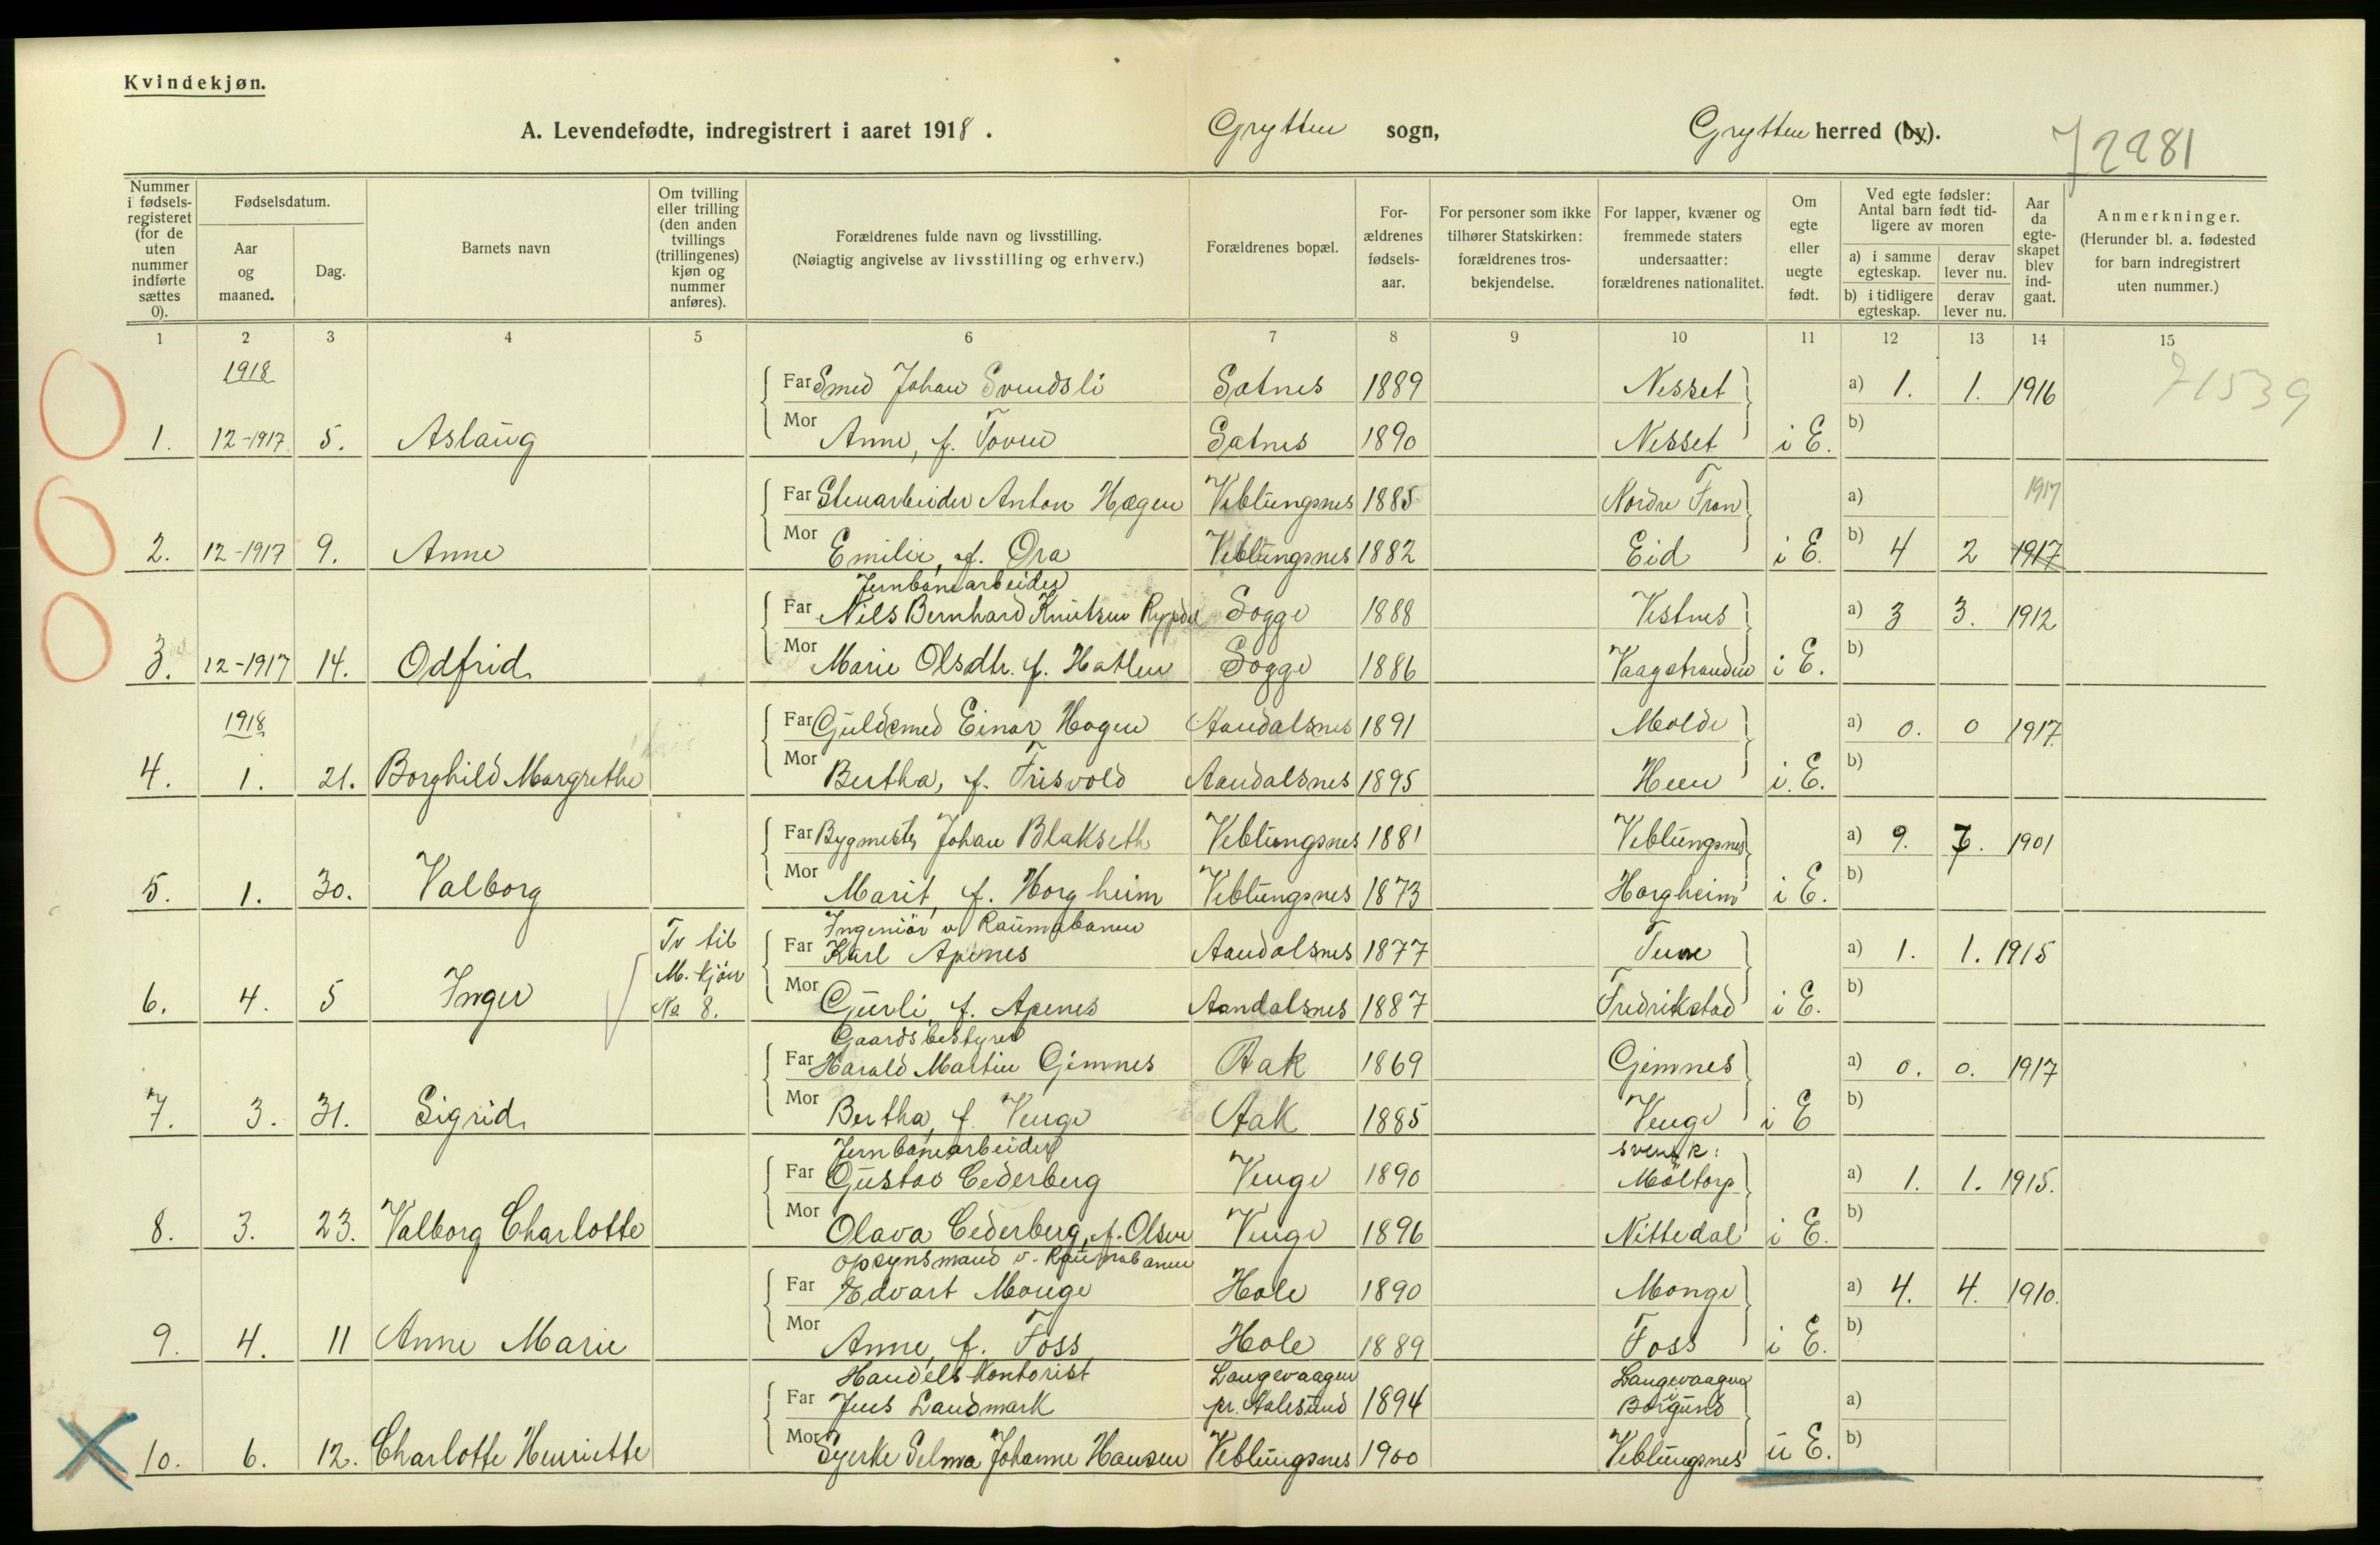 Kvindekjøn.
A. Levendefødte, indregistrert i aaret 1918. Grytten sogn, Grytten herred (by).
72281
Nummer i fødsels-registeret (for de uten nummer indførte sættes 0).
Fødselsdatum.
Aar og maaned.
Dag.
Barnets navn
Om tvilling eller trilling (den anden tvillings (trillingenes) kjøn og nummer anføres).
Forældrenes fulde navn og livsstilling.
(Nøiagtig angivelse av livsstilling og erhverv.)
Forældrenes bopæl.
For-ældrenes fødsels-aar.
For personer som ikke tilhører Statskirken: forældrenes tros-bekjendelse.
For lapper, kvæner og fremmede staters undersaatter: forældrenes nationalitet.
Om egte eller uegte født.
Ved egte fødsler: Antal barn født tid-ligere av moren
a) i samme egteskap.
derav lever nu.
b) i tidligere egteskap.
derav lever nu.
Aar da egte-skapet blev ind-gaat.
Anmerkninger.
(Herunder bl. a. fødested for barn indregistrert uten nummer.)
1 2 3 4 5 6 7 8 9 10 11 12 13 14 15
1918
71539
Far Smed Johan Svendsli Satnes 1889 Nesset a) 1. 1. 1916
1. 12-1917 5. Aslaug Mor Anne, f. Toven Satnes 1890 Nesset i E. b)
Far Stenarbeider Anton Hagen Veblungsnes 1885 Nordre Fron a) 1917
2. 12-1917 9. Anne Mor Emilie, f. Ora Veblungsnes 1882 Eid i E. b) 4 2 1917
Jernbanearbeider
Far Nils Bernhard Knutsen Rypdal Sogge 1888 Vestnes a) 3 3. 1912
3. 12-1917 14. Odfrid Mor Marie Olsdtr. f. Hatlen Sogge 1886 Vaagstranden i E. b)
1918
Far Guldsmed Einar Hagen Aandalsnes 1891 Molde a) 0. 0 1917
4. 1. 21. Borghild Margrethe Mor Bertha, f. Frisvold Aandalsnes 1895 Heen i E. b)
Far Bygmester Johan Blakseth Veblungsnes 1881 Veblungsnes a) 9. 7. 1901
5. 1. 30. Valborg Mor Marit, f. Horgheim Veblungsnes 1873 Horgheim i E. b)
Ingeniør v Raumabanen
Tv til
Far Karl Apenes Aandalsnes 1877 Tune a) 1. 1. 1915
M. kjøn
6. 4. 5 Inger No 8. Mor Gurli, f. Apenes Aandalsnes 1887 Fredrikstad i E. b)
Gaardsbestyrer
Far Harald Martin Gimnes Aak 1869 Gjemnes a) 0. 0. 1917
7. 3. 31. Sigrid Mor Bertha, f. Venge Aak 1885 Venge i E b)
Jernbanearbeider svensk:
Far Gustav Cederberg Venge 1890 Möltorp a) 1. 1. 1915.
8. 3. 23. Valborg Charlotte Mor Olava Cederberg, f. Olsen Venge 1896 Nittedal i E. b)
opsynsmand v. Raumabanen
Far Edvart Monge Hole 1890 Monge a) 4. 4. 1910.
9. 4. 11 Anne Marie Mor Anne, f. Foss Hole 1889 Foss i E. b)
Handelskontorist Langevaagen Langevaagen
Far Jens Landmark pr. Aalesund 1894 i Borgund a)
10. 6. 12. Charlotte Henriette Mor Selma Johanne Hansen Veblungsnes 1900 Veblungsnes u E. b)